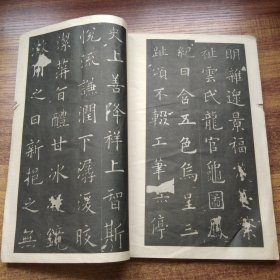 明雜遝景福繁
祉雲氏龍官龜圖鳳
紀日含五色烏呈三
趾頌不輟工筆停
史上善降祥上智斯
悅流謙潤下潺湲皎
潔蓱旨醴甘冰鏡
澈用之日新挹之無